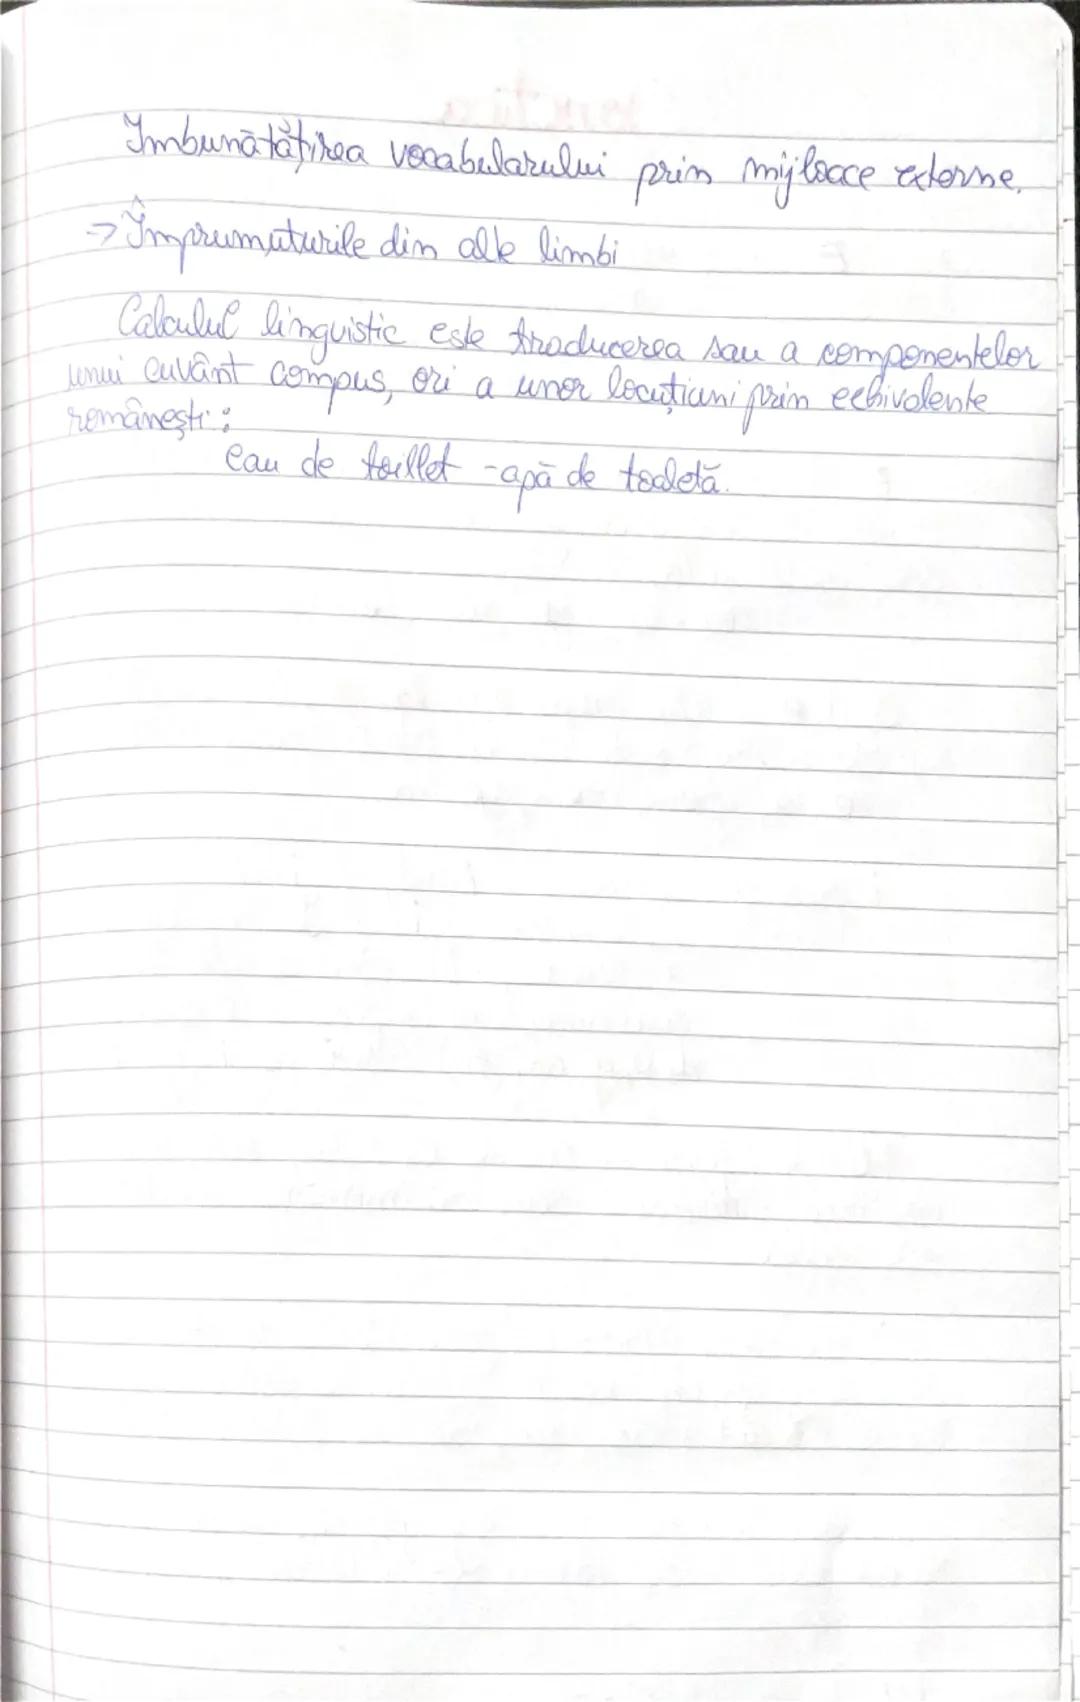 Imbunătățirea vocabularului prin mijloace externe.
→ Împrumuturile din alte limbi
Calculul linguistic este traducerea sau a componentelor
unui cuvânt compus, ori a unor locuțiuni prin echivalente
românești:
eau de toillet - apă de toaletă.